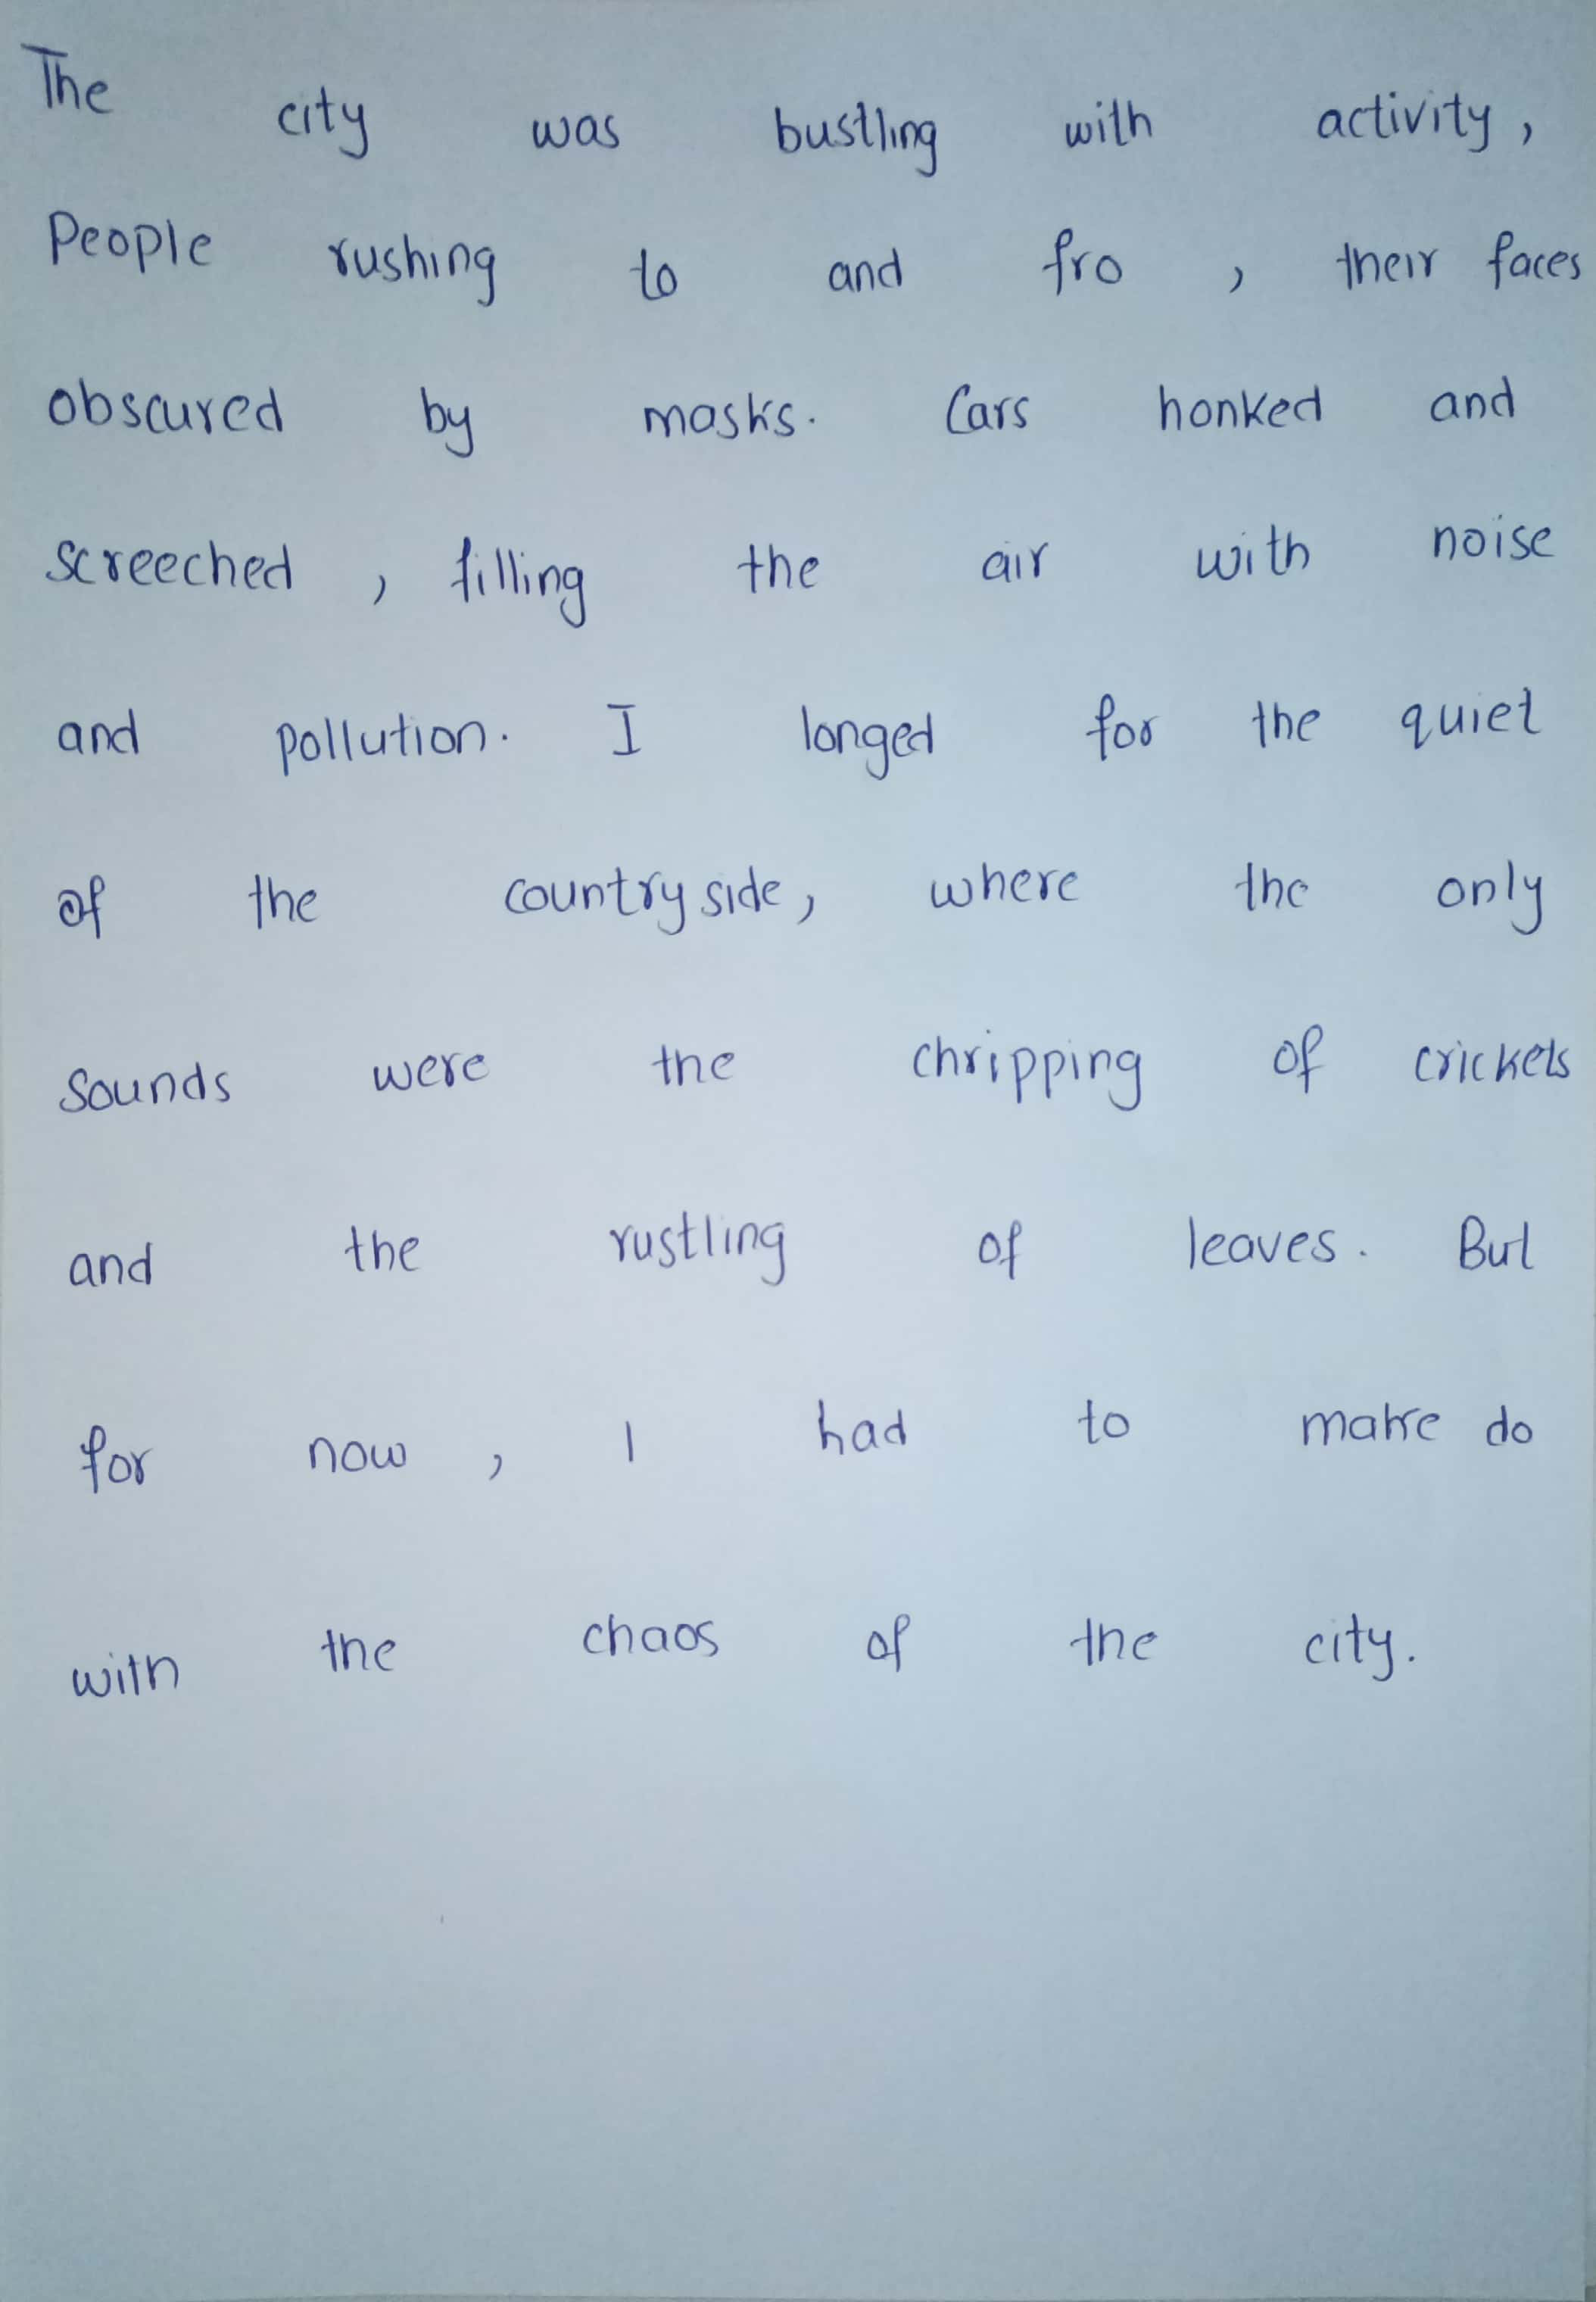 The city was bustling with activity,
People rushing to and fro, their faces
obscured by masks. Cars honked and
screeched, filling the air with noise
and pollution. I longed for the quiet
of the countryside, where the only
sounds were the chripping of crickets
and the rustling of leaves. But
for now, I had to make do
with the chaos of the city.